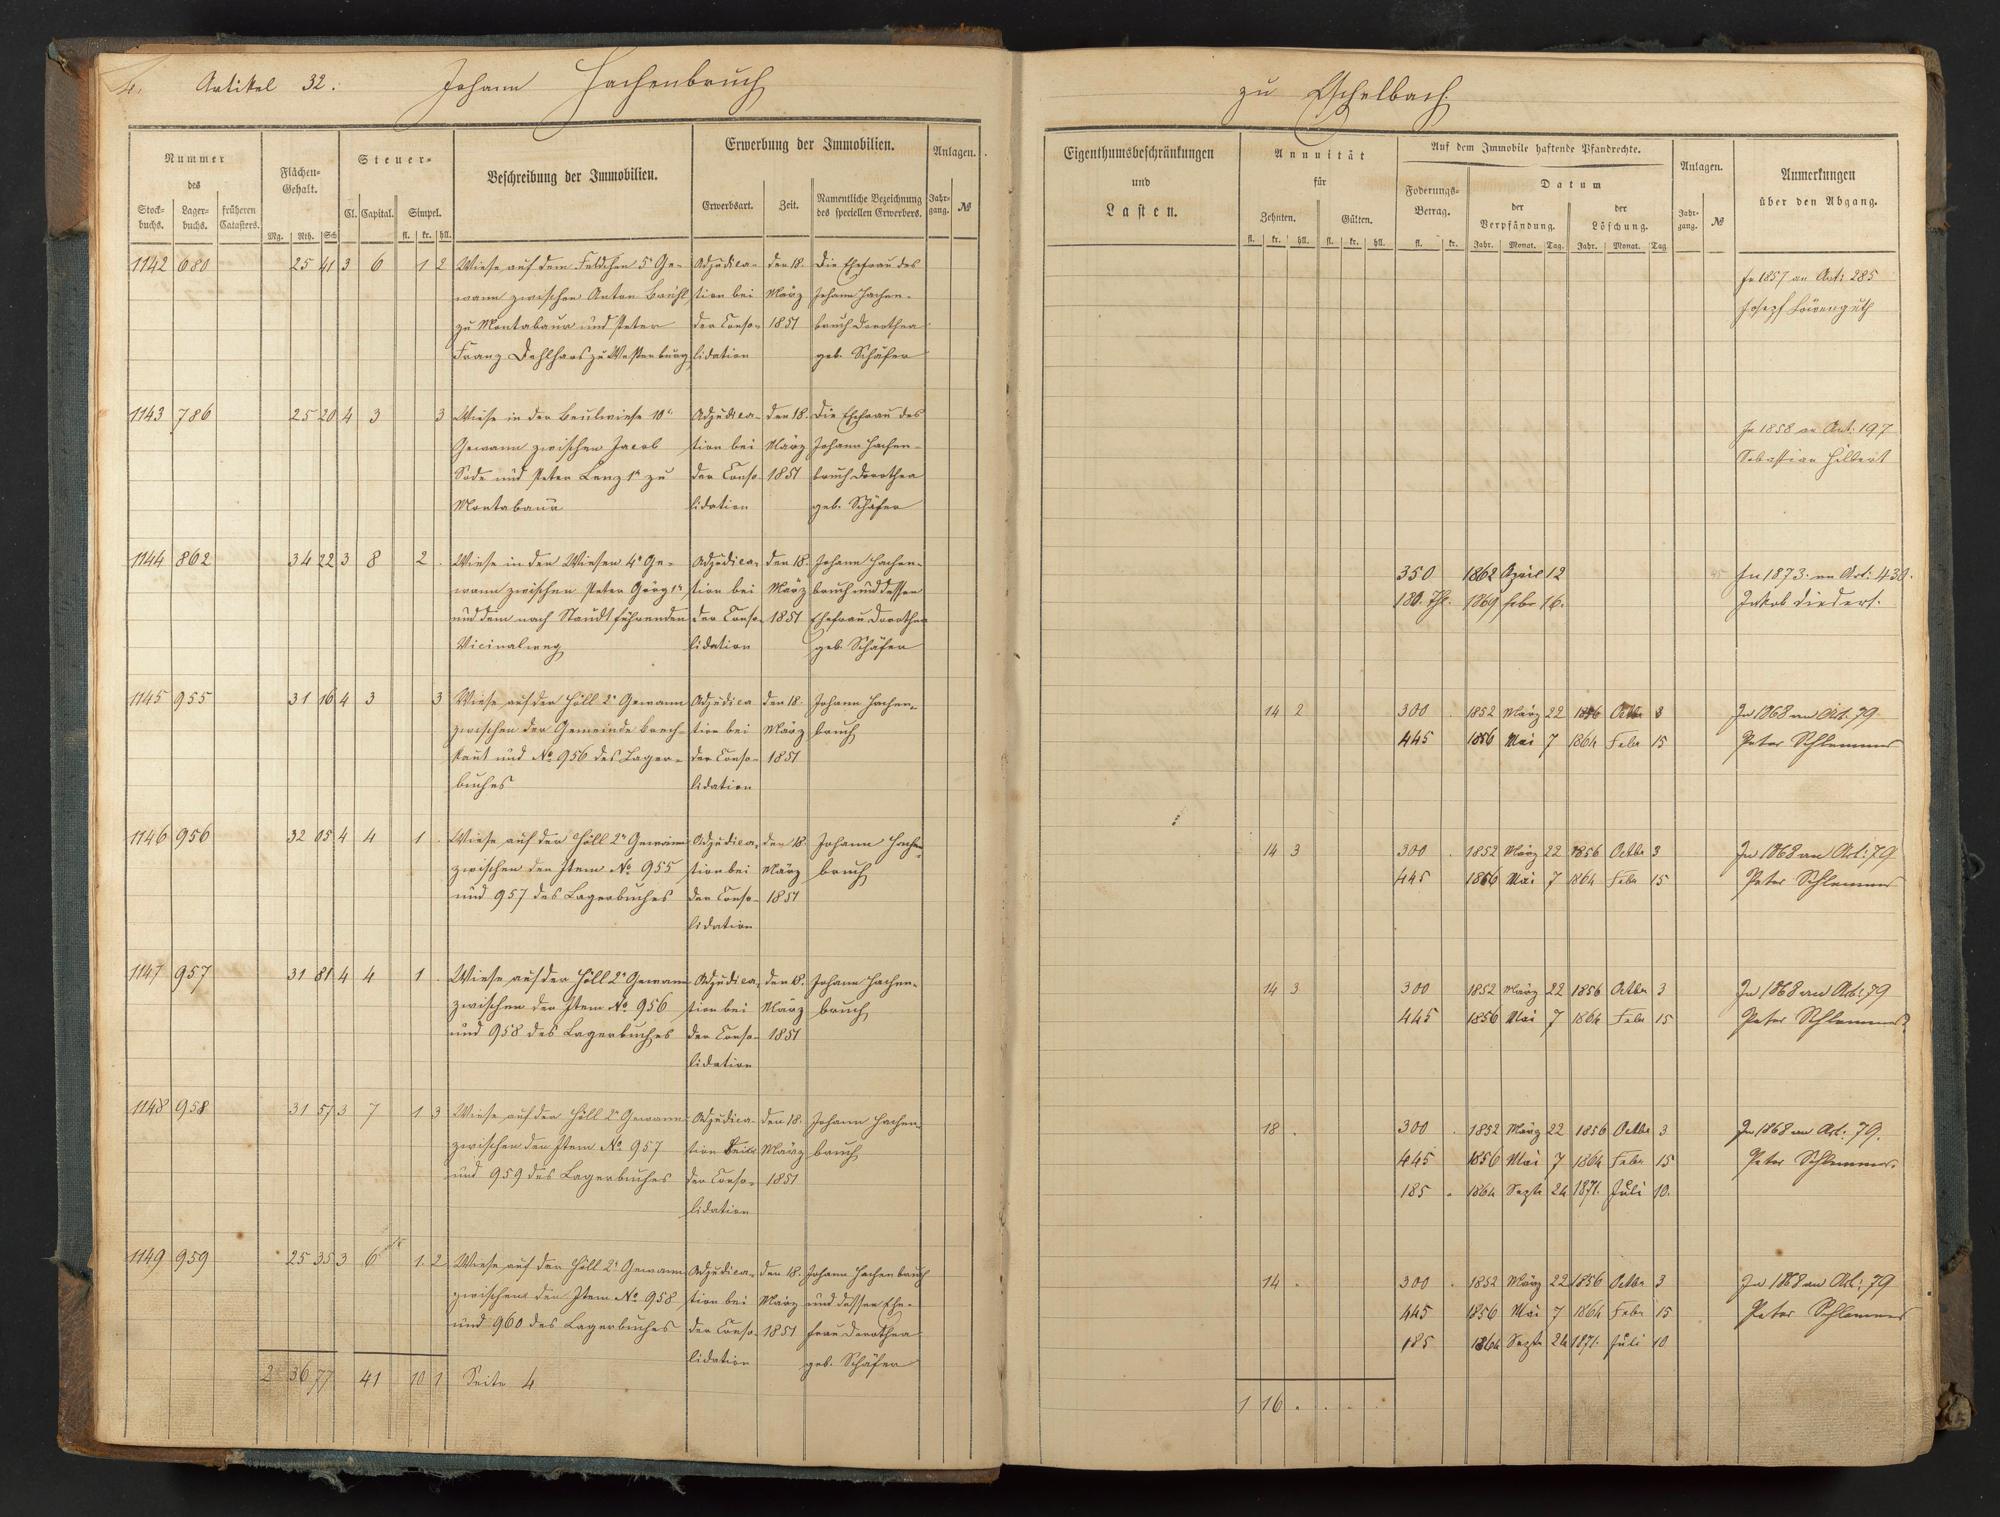 4. Artikel 32. Johann Hachenbruch
Nummer
des
Stock-
buchs.
Lager-
buchs.
früheren
Catasters.
Flächen-
Gehalt.
Mg. Rth. Sch
Steuer-
Cl. Capital. Simpel.
fl. kr. hll.
Beschreibung der Immobilien.
Erwerbung der Immobilien.
Erwerbsart. Zeit. Namentliche Bezeichnung
des speciellen Erwerbers.
Anlagen.
Jahr-
gang. №
1142 680 25 41 3 6 1 2 Wiese auf dem Feldchen 5r Ge- Adjudica- den 18. Die Ehefrau des
wann zwischen Anton Brühl tion bei März Johann Hachen-
zu Montabaur und Peter der Conso- 1851 bruch Dorothea
Franz Dahlhaus zu Westenburg lidation geb. Schäfer
1143 786 25 20 4 3 3 Wiese in der Beulwiese 10r Adjudica- den 18. Die Ehefrau des
Gewann zwischen Jacob tion bei März Johann Hachen-
Sode und Peter Lenz 1r zu der Conso- 1851 bruch Dorothea
Montabaur lidation geb. Schäfer
1144 862 34 22 3 8 2 . Wiese in den Wiesen 4r Ge- Adjudica- den 18. Johann Hachen-
wann zwischen Peter Görg 1r tion bei März bruch und dessen
und dem nach Staudt führenden der Conso- 1851 Ehefrau Dorothea
Vicinalweg lidation geb. Schäfer
1145 955 31 16 4 3 3 Wiese auf der Höll 2r Gewann Adjudica den 18. Johann Hachen-
zwischen der Gemeinde Brech- tion bei März bruch
kaut und No 956 des Lager- der Conso- 1851
buches lidation
1146 956 32 05 4 4 1 . Wiese auf der Höll 2r Gewann Adjudica- den 18. Johann Hachen-
zwischen den Item No 955 tion bei März bruch
und 957 des Lagerbuches der Conso- 1851
lidation
1147 957 31 81 4 4 1 . Wiese auf der Höll 2r Gewann Adjudica- den 18. Johann Hachen-
zwischen den Item No 956 tion bei März bruch
und 958 des Lagerbuches der Conso- 1851
lidation
1148 958 31 57 3 7 1 3 Wiese auf der Höll 2r Gewann Adjudica- den 18. Johann Hachen-
zwischen den Item No 957 tion bei März bruch
und 959 des Lagerbuches der Conso- 1851
lidation
1149 959 25 35 3 6 1 2 Wiese auf der Höll 2r Gewann Adjudica- den 18. Johann Hachenbruch
zwischen den Item No 958 tion bei März und dessen Ehe-
und 960 des Lagerbuches der Conso- 1851 frau Dorothea
lidation geb. Schäfer
2 36 77 41 10 1 Seite 4
zu Eschelbach.
Eigenthumsbeschränkungen
und
Lasten.
Annuität
für
Zehnten. Gülten.
fl. kr. hll. fl. kr. hll.
Auf dem Immobile haftende Pfandrechte.
Foderungs-
Betrag.
fl. kr.
Datum
der
Verpfändung.
der
Löschung.
Jahr. Monat. Tag. Jahr. Monat. Tag
Anlagen.
Jahr-
gang. №
Anmerkungen
über den Abgang.
In 1857 an Art: 285
Josepf Löwenguth
In 1858 an Art: 197
Sebastian Hilbert
350 1862 April 12 In 1873. an Art: 430.
180. Thl. 1869 Febr 16. Jakob Diedert.
14 2 300 . 1852 März 22 1856 Octbr 3 In 1868 an Art. 79
445 1856 Mai 7 1864 Febr 15 Peter Schlemmer
14 3 300 . 1852 März 22 1856 Octbr 3 In 1868 an Art: 79
445 1856 Mai 7 1864 Febr 15 Peter Schlemmer
14 3 300 1852 März 22 1856 Octbr 3 In 1868 an Art: 79
445 1856 Mai 7 1864 Febr 15 Peter Schlemmer
18 . 300 . 1852 März 22 1856 Octbr 3 In 1868 an Art: 79.
445 1856 Mai 7 1864 Febr 15 Peter Schlemmer.
185 . 1864 Septr 24 1871. Juli 10.
14 . 300 . 1852 März 22 1856 Octbr 3 In 1868 an Art: 79
445 1856 Mai 7 1864 Febr 15 Peter Schlemmer
185 1864 Septr 24 1871. Juli 10
1 16 . . . .